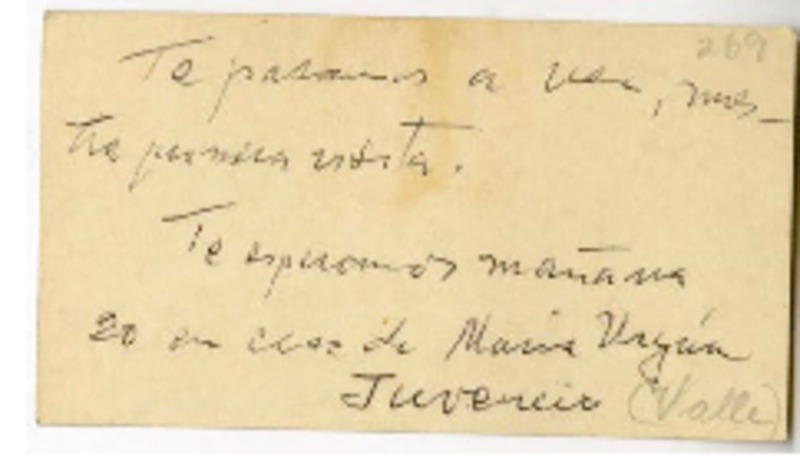 269
Te pasamos a ver, nues-
tra primera visita.
Te esperamos mañana
20 en casa de Maria Virginia
Juvencio (Valle)